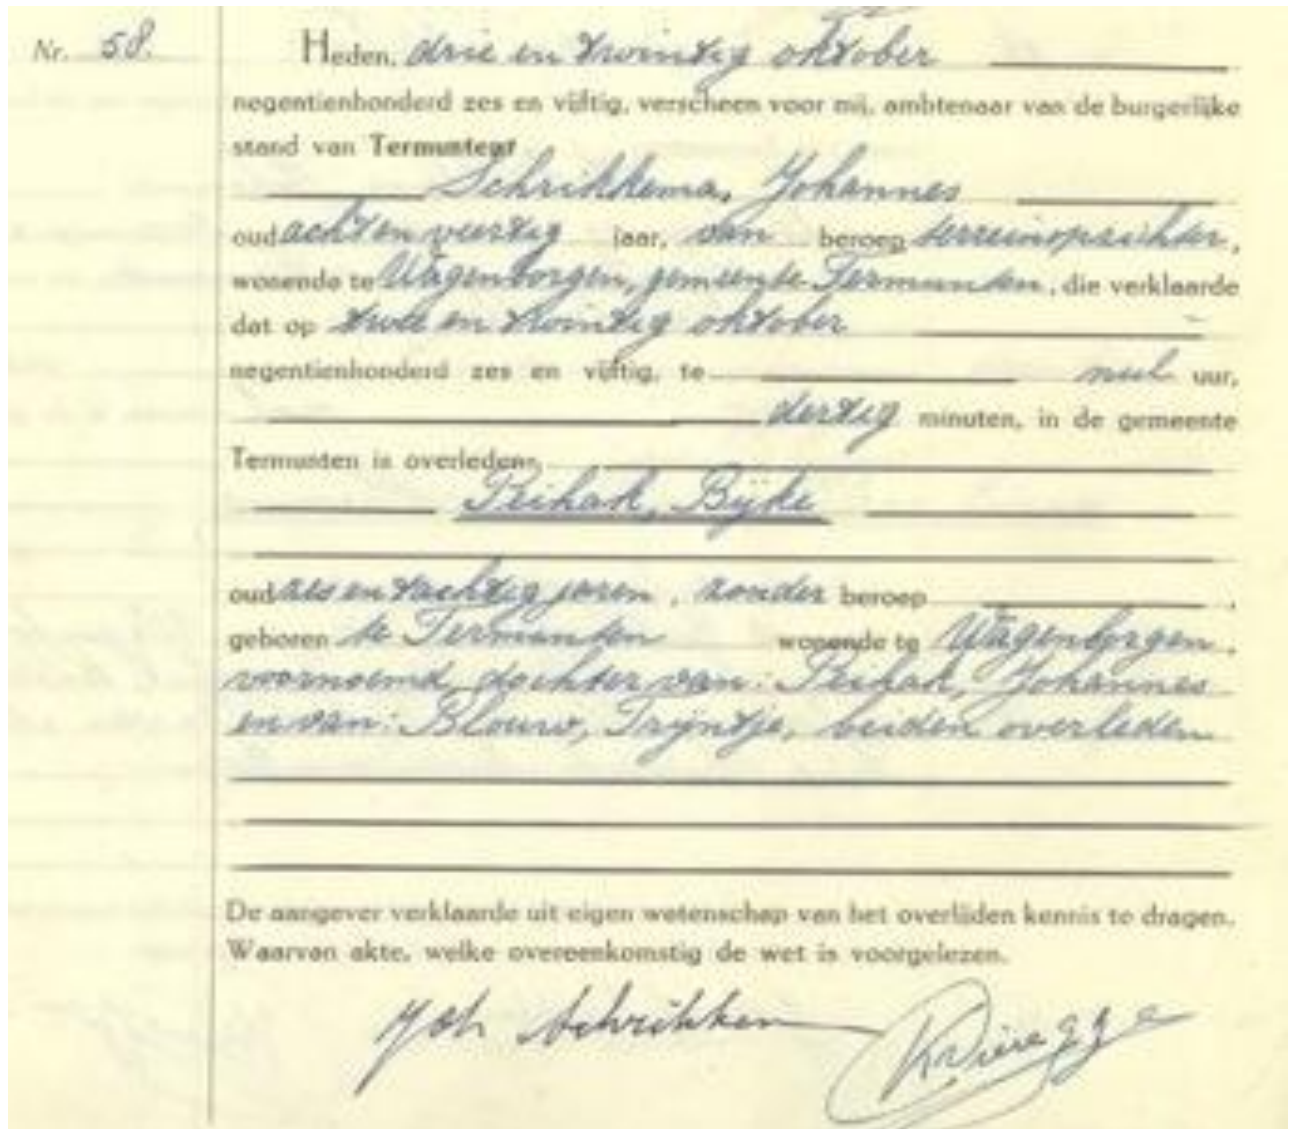 Nr. 58.
Heden, drie en twintig oktober
negentienhonderd zes en vijftig, verscheen voor mij, ambtenaar van de burgerlijke
stand van Termunten
Schrikkema, Johannes
oud acht en veertig jaar, van beroep terreinopzichter,
wonende te Wagenborgen, gemeente Termunten, die verklaarde
dat op twee en twintig oktober
negentienhonderd zes en vijftig, te nul uur,
dertig minuten, in de gemeente
Termunten is overleden
Bijke
oud zes en tachtig jaren, zonder beroep
geboren te Termunten wonende te Wagenborgen,
voornoemd, dochter van: Johannes
en van: Blouw, Trijntje, beiden overleden
De aangever verklaarde uit eigen wetenschap van het overlijden kennis te dragen.
Waarvan akte, welke overeenkomstig de wet is voorgelezen.
Joh Schrikkema